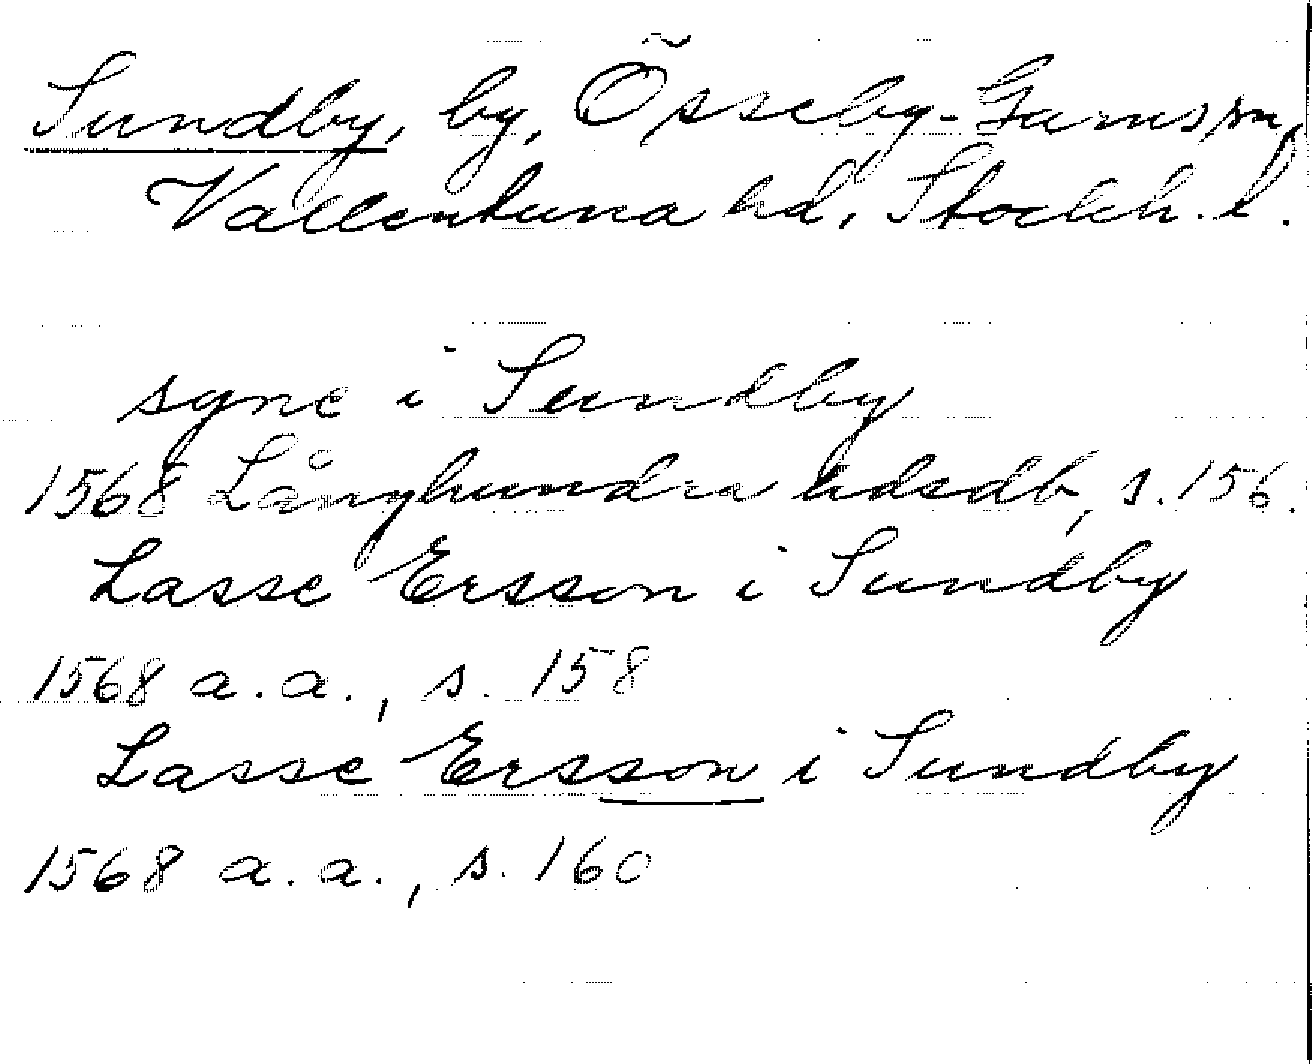 Sundby, by, Össeby-Garns sn,
Vallentuna hd, Stockh. l.
syne i Sundby
1568 Långhundra hdsdb, s. 156.
Lasse Ersson i Sundby
1568 a. a., s. 158
Lasse Ersson i Sundby
1568 a. a., s. 160